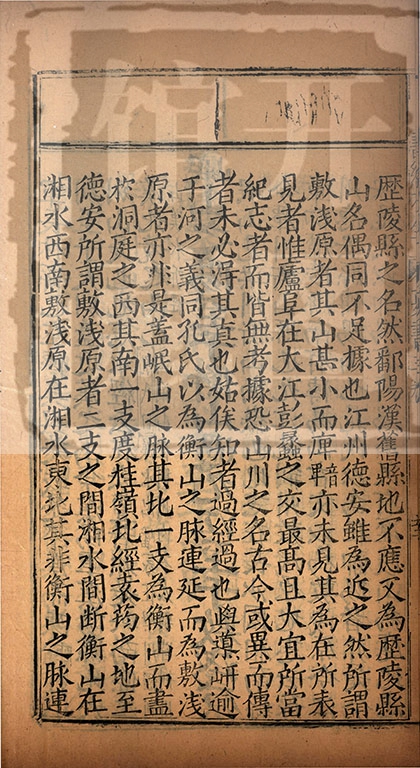 歷陵縣之名然鄱陽漢舊縣地不應又為歷陵縣
山名偶同不足據也江州德安雖為近之然所謂
敷淺原者其山甚小而庳亦未見其為在所表
見者惟廬阜在大江彭蠡之交最髙且大宜所當
紀志者而皆無考據恐山川之名古今或異而傳
者未必得其真也姑俟知者過經過也與導岍逾
于河之義同孔氏以為衡山之脉連延而為敷淺
原者亦非是蓋岷山之脉其北一支為衡山而盡
於洞庭之西其南一支度桂嶺北經袁筠之地至
德安所謂敷淺原者二支之間湘水間断衡山在
湘水西南敷淺原在湘水東北其非衡山之脉連